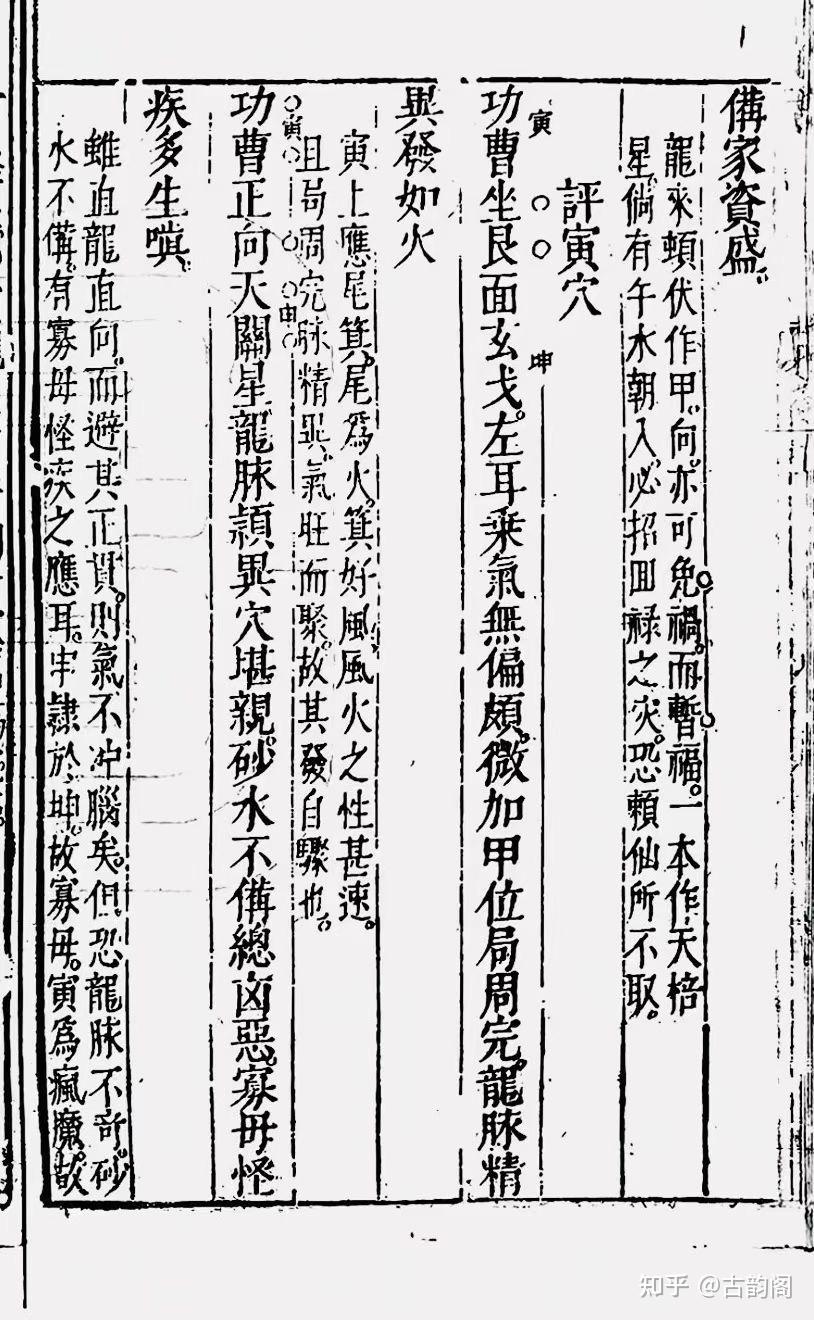 備家資盛
龍來頓伏作甲向亦可免禍而暫福一本作天棓
星倘有午水朝入必招回祿之灾恐賴仙所不取
評寅穴
寅 坤
功曹坐艮面玄戈左耳乗氣無偏頗微加甲位局周完龍脉精
異發如火
寅上應尾箕尾爲火箕好風風火之性甚速
且局周完脉精異氣旺而聚故其發自驟也
寅 申
功曹正向天關星龍脉頴異穴堪親砂水不備總凶惡寡母怪
疾多生嗔
雖直龍直向而避其正貫則氣不冲腦矣但恐龍脉不奇砂
水不備有寡母怪疾之應耳牢隷於坤故寡母寅爲瘋魔故
知乎 @古韵阁